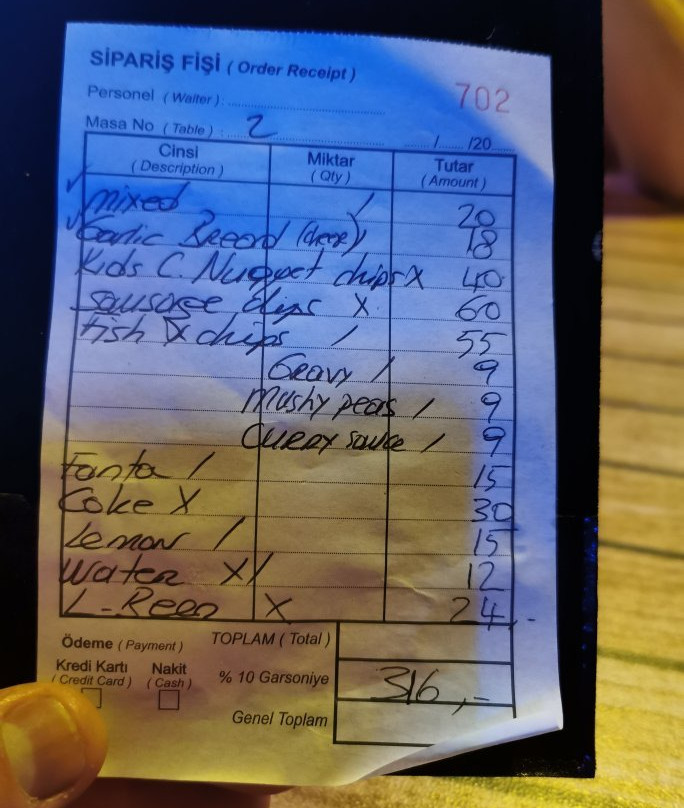 SİPARİŞ FİŞİ ( Order Receipt )
702
Personel ( Waiter ) :
Masa No ( Table ) : 2
/ /20
Cinsi ( Description ) Miktar ( Qty ) Tutar ( Amount )
mixed / 20
Garlic Breord (cheese) / 18
Kids C. Nugget chips X 40
sausage chips X 60
Fish & chips / 55
Gravy / 9
Mushy peas / 9
CURRY sauce / 9
Fanta / 15
Coke X 30
Lemon / 15
Water X/ 12
X 24,-
Ödeme ( Payment ) TOPLAM ( Total )
Kredi Kartı ( Credit Card ) Nakit ( Cash ) % 10 Garsoniye 316,-
Genel Toplam